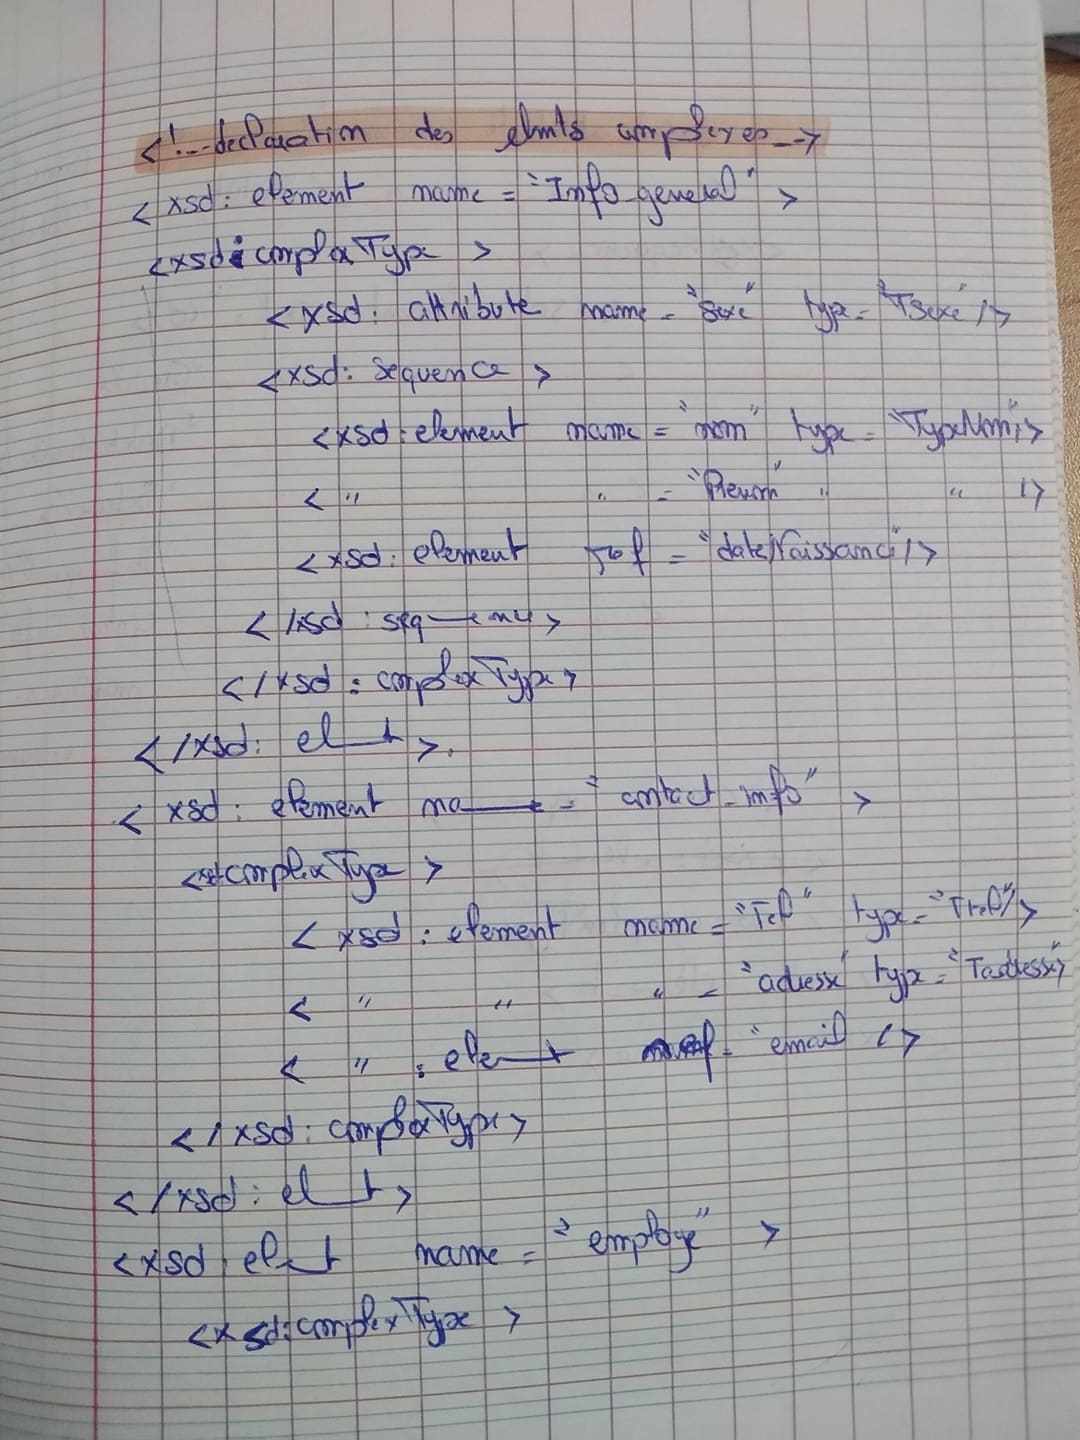 <!-- declaration des elmts complexes -->
<xsd: element name = "Info_general" >
<xsd: complexType >
<xsd: attribute name = "Sexe" type = "TSexe" />
<xsd: sequence >
<xsd: element name = "nom" type = "TypeNom" />
< " " = "Prenom" " " />
<xsd: element ref = "dateNaissance" />
</xsd : seq——nce >
</xsd : complexType >
</xsd: el——t >.
< xsd : element na—— = "contact_info" >
<xsd complexType >
< xsd : element name = "Tel" type = "Ttel" />
< " " " = "adresse" type = "Tadresse" >
< " : ele——t ref = "email />
</xsd : complexType >
</xsd : el——t >
<xsd : el——t name = "employe" >
<xsd:complexType >